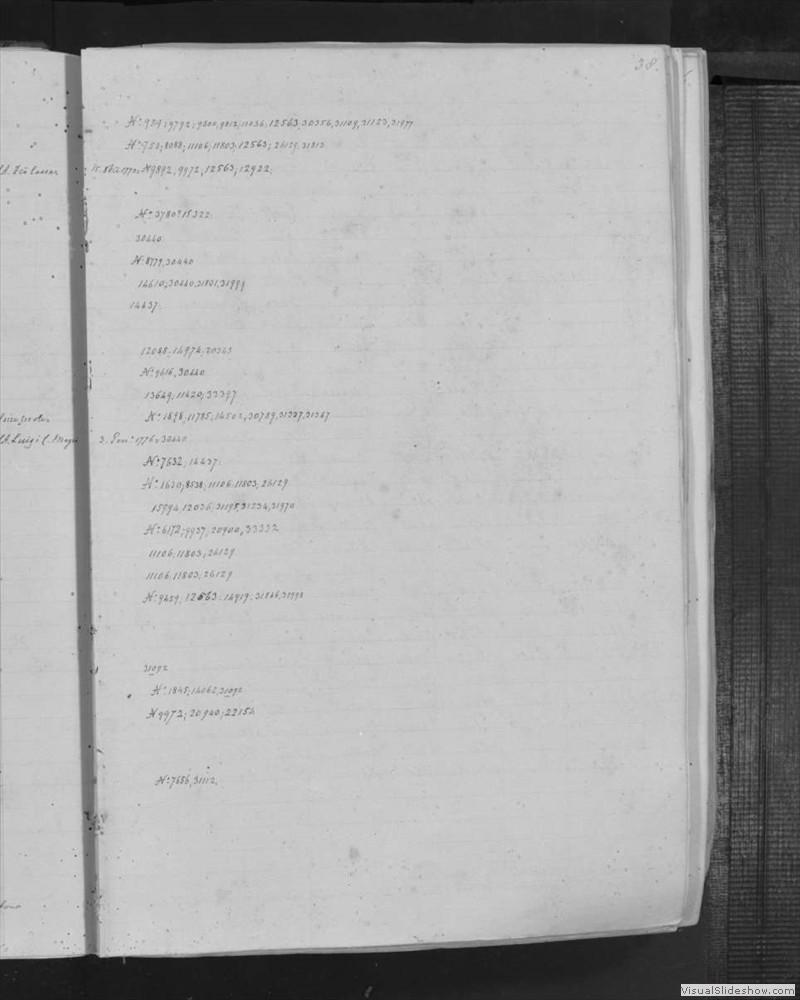 38.
N.° 984; 9792; 9800, 9812; 11036; 12563, 30356, 31109, 31123, 31977
N.° 8088; 11106; 11803; 12563; 26129. 31813
N.° 9892, 9972, 12563; 12922.
N.° 3780; 15322.
30440.
N.° 8779, 30440
14610; 30440, 31801, 31999
14437.
12048; 14974; 20363
N.° 9616, 30440
13649; 11420; 33397
N.° 1898, 11785, 14502, 30789, 31327, 31367
Luigi C. 3. Gen.° 1776. 30440
N.° 7632; 14437.
N.° 1630; 8538; 11106. 11803; 26129.
15994, 12036; 31195, 31234, 31970
N.° 6172; 9937; 20900, 33332
11106; 11803; 26129
11106; 11803; 26129
N.° 9459; 12563; 14919; 31846, 31998
31092
N.° 1845; 14062, 31092
N.° 9972; 20940; 22154
N.° 7656, 31112.
VisualSlideshow.com